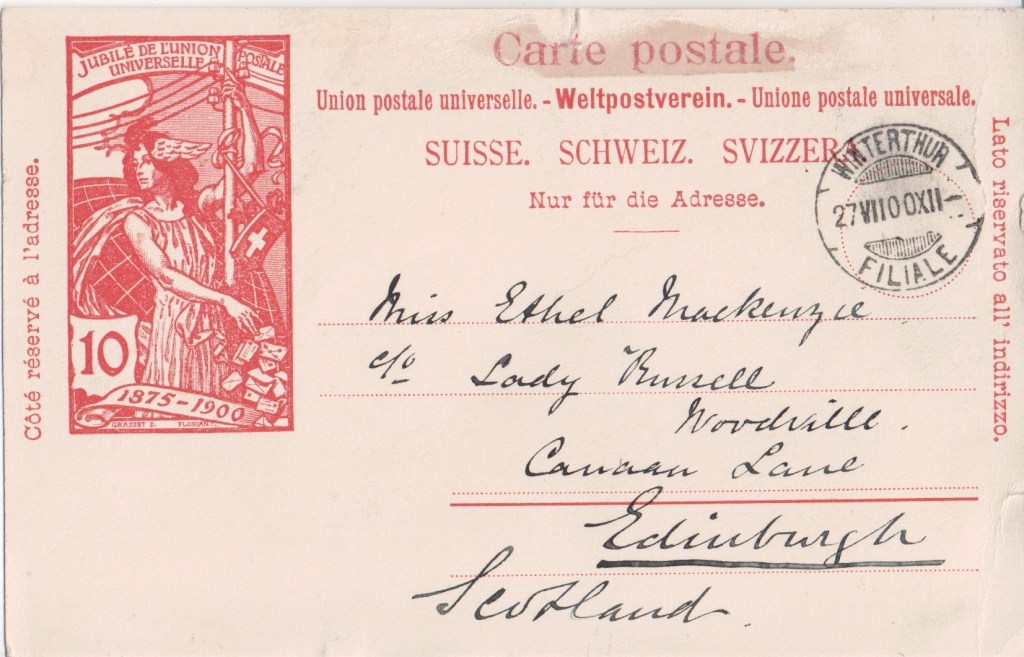 JUBILÉ DE L'UNION
UNIVERSELLE POSTALE
10
1875-1900
GRASSET E. FLORIAN
Côté réservé à l'adresse.
Carte postale.
Union postale universelle. - Weltpostverein. - Unione postale universale.
SUISSE. SCHWEIZ. SVIZZERA
Nur für die Adresse.
Lato riservato all' indirizzo.
WINTERTHUR
27 VII 00 XII-
FILIALE
Miss Ethel Mackenzie
c/o Lady Russell
Woodville.
Canaan Lane
Edinburgh
Scotland.